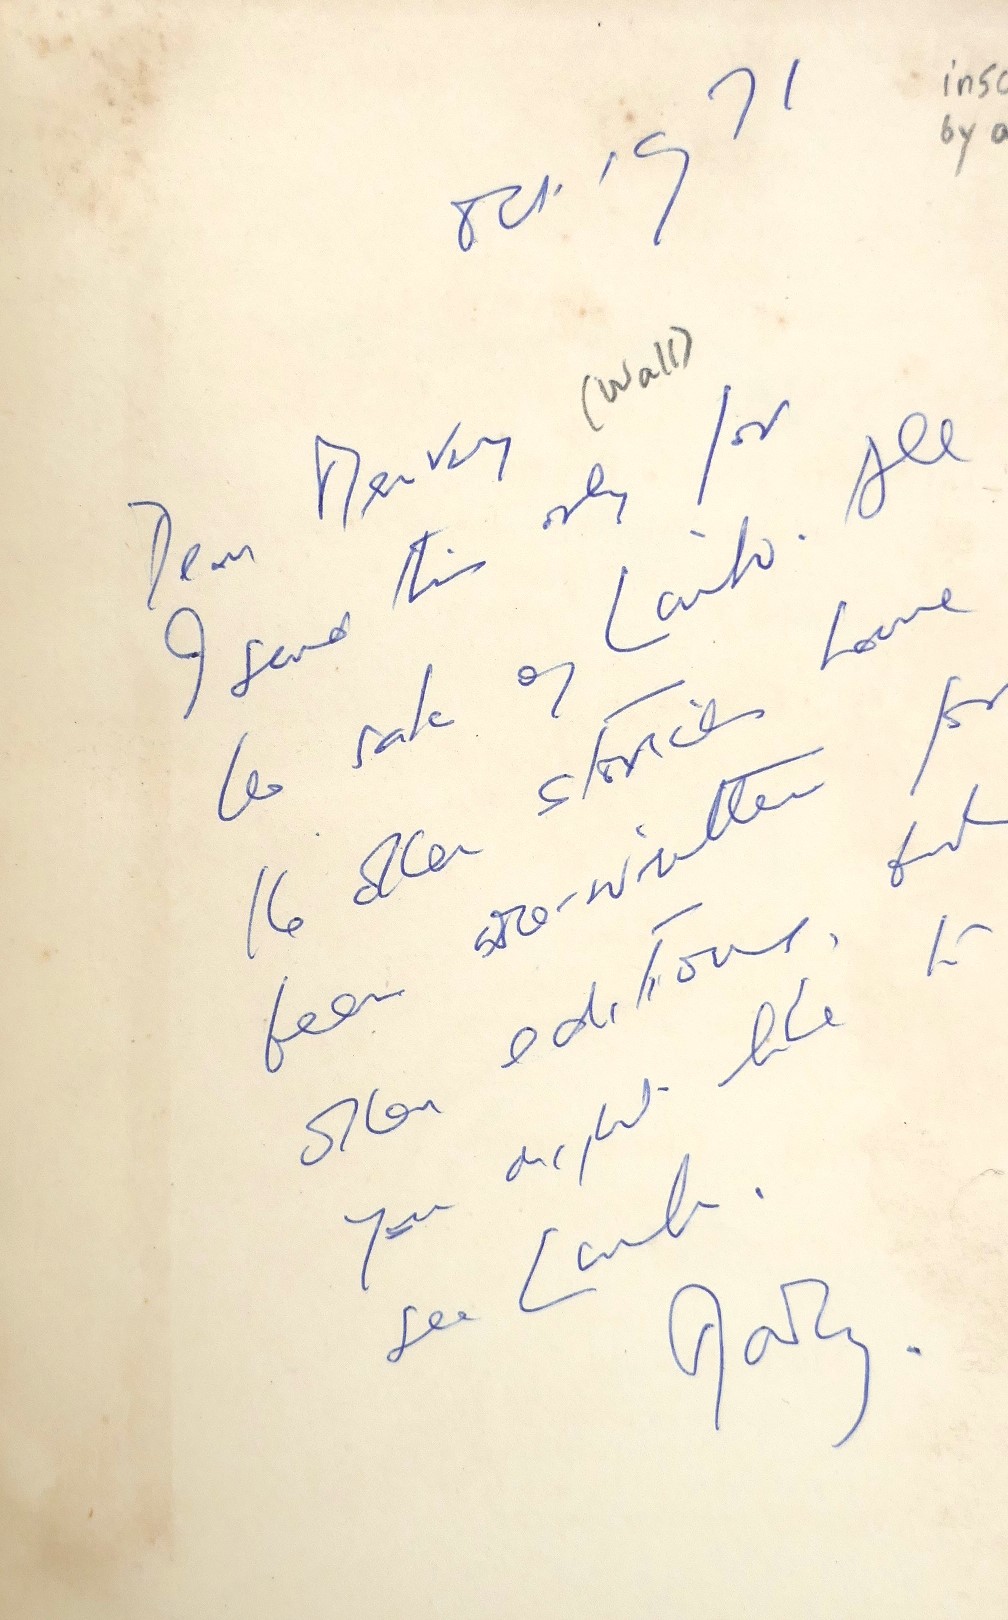 insc
by a
Oct. 1971
(Wall)
Dear Mervyn
I send this only for
the sake of All
the other stories have
been re-written for
other editions, but
you might like to
see